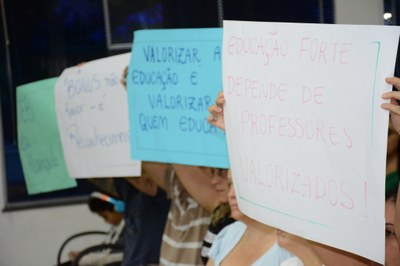 BÔNUS não
favor - é
Reconhecimen
VALORIZAR A
EDUCAÇÃO É
VALORIZAR
QUEM EDUCA
EDUCAÇÃO FORTE
DEPENDE DE
PROFESSORES
VALORIZADOS!